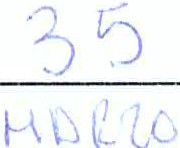 35
HDR20